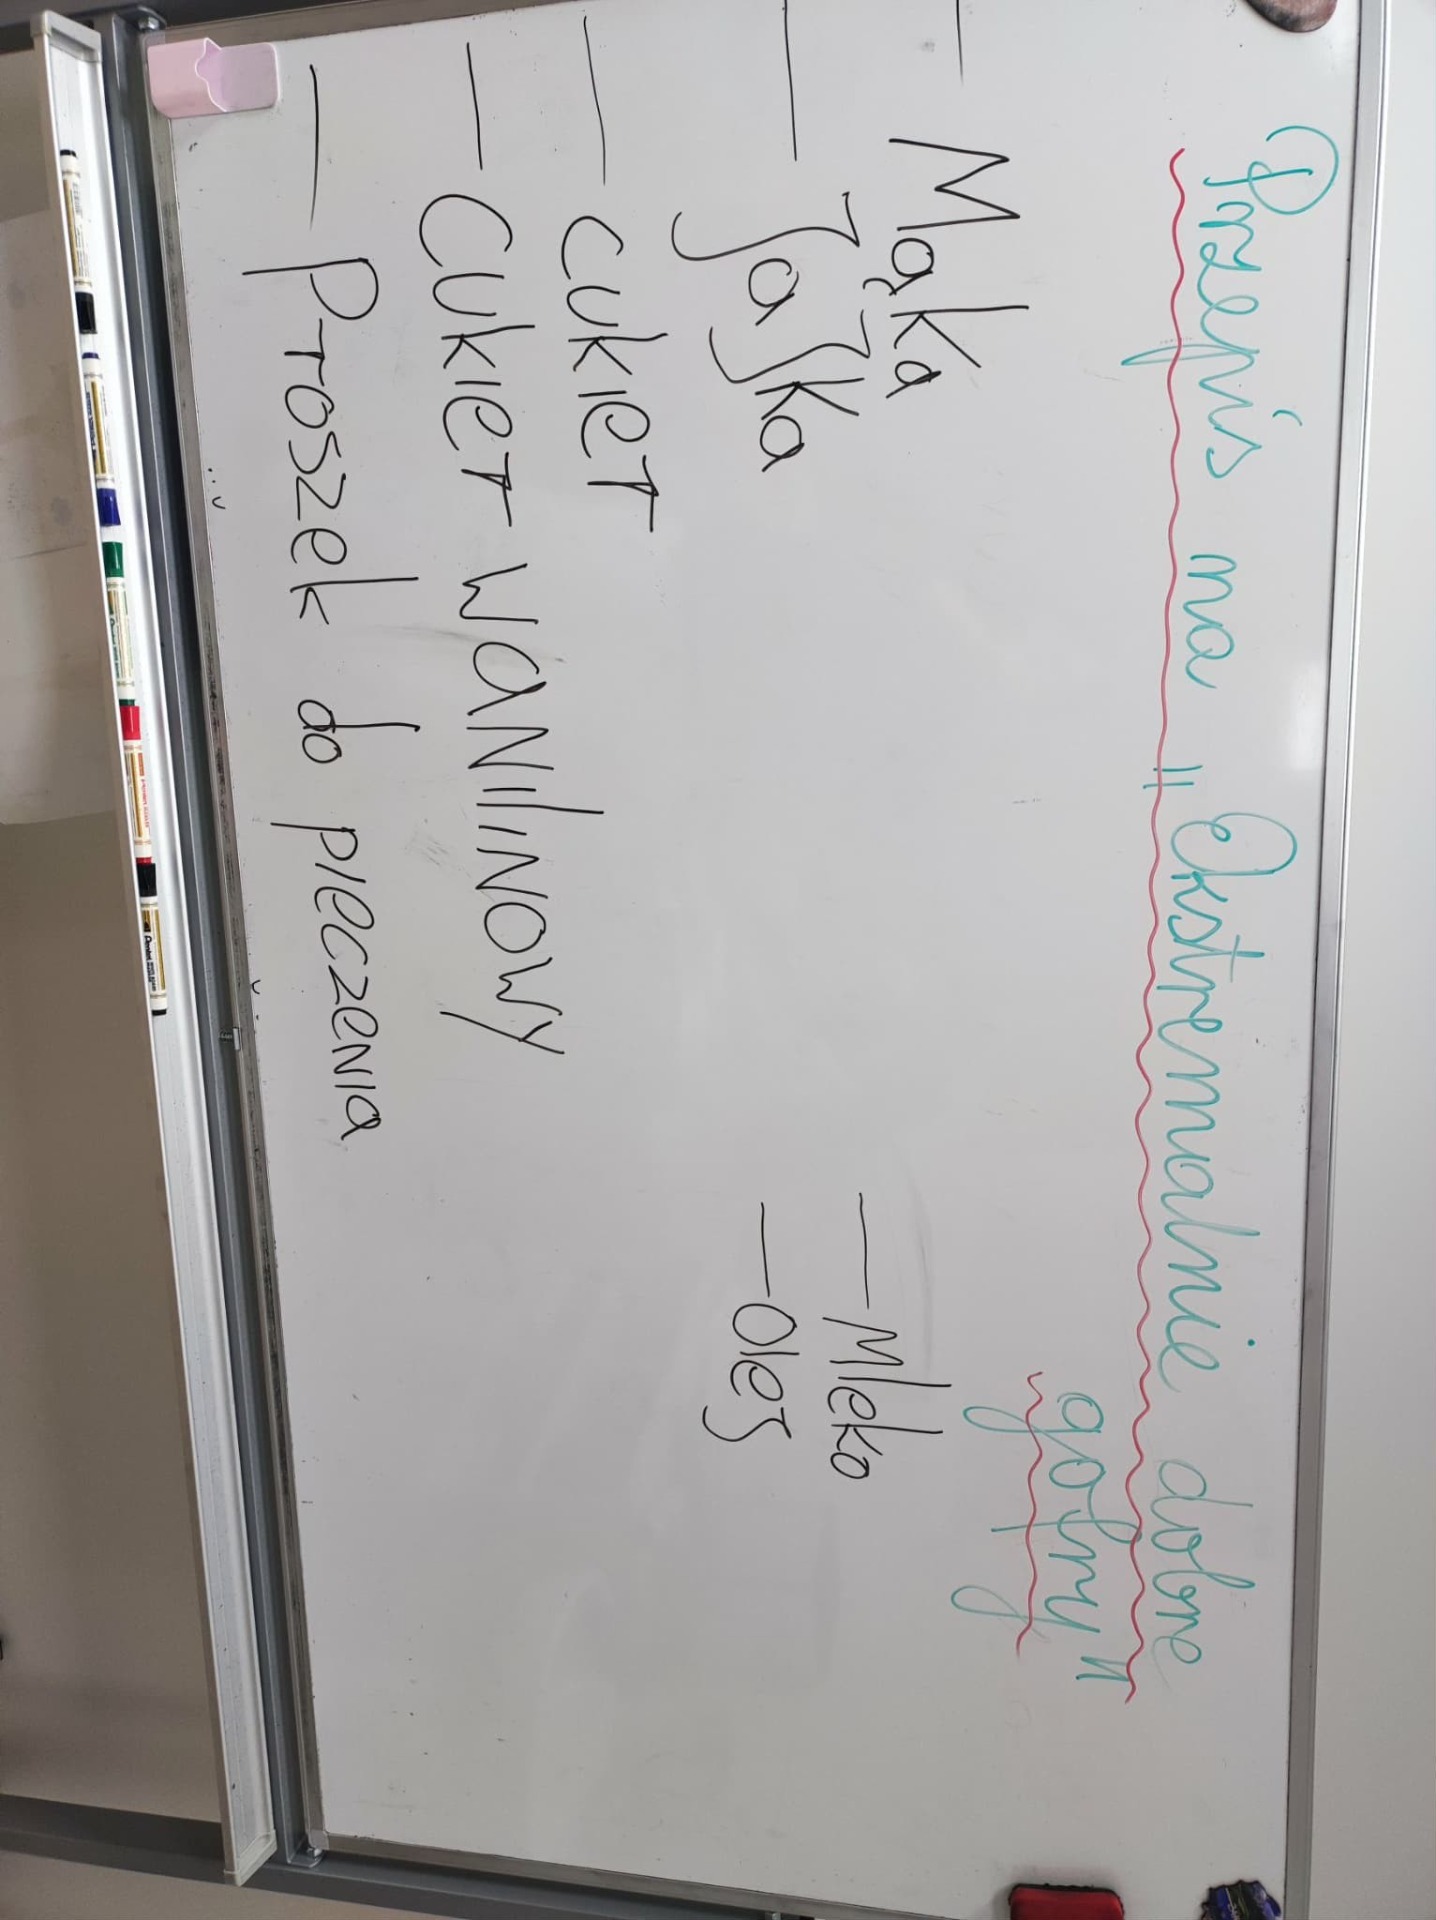 Przepis na „Ekstremalnie dobre
gofry"
— Mąka
— Jajka
— cukier
— Cukier wanilinowy
— Proszek do pieczenia
— Mleko
— Olej